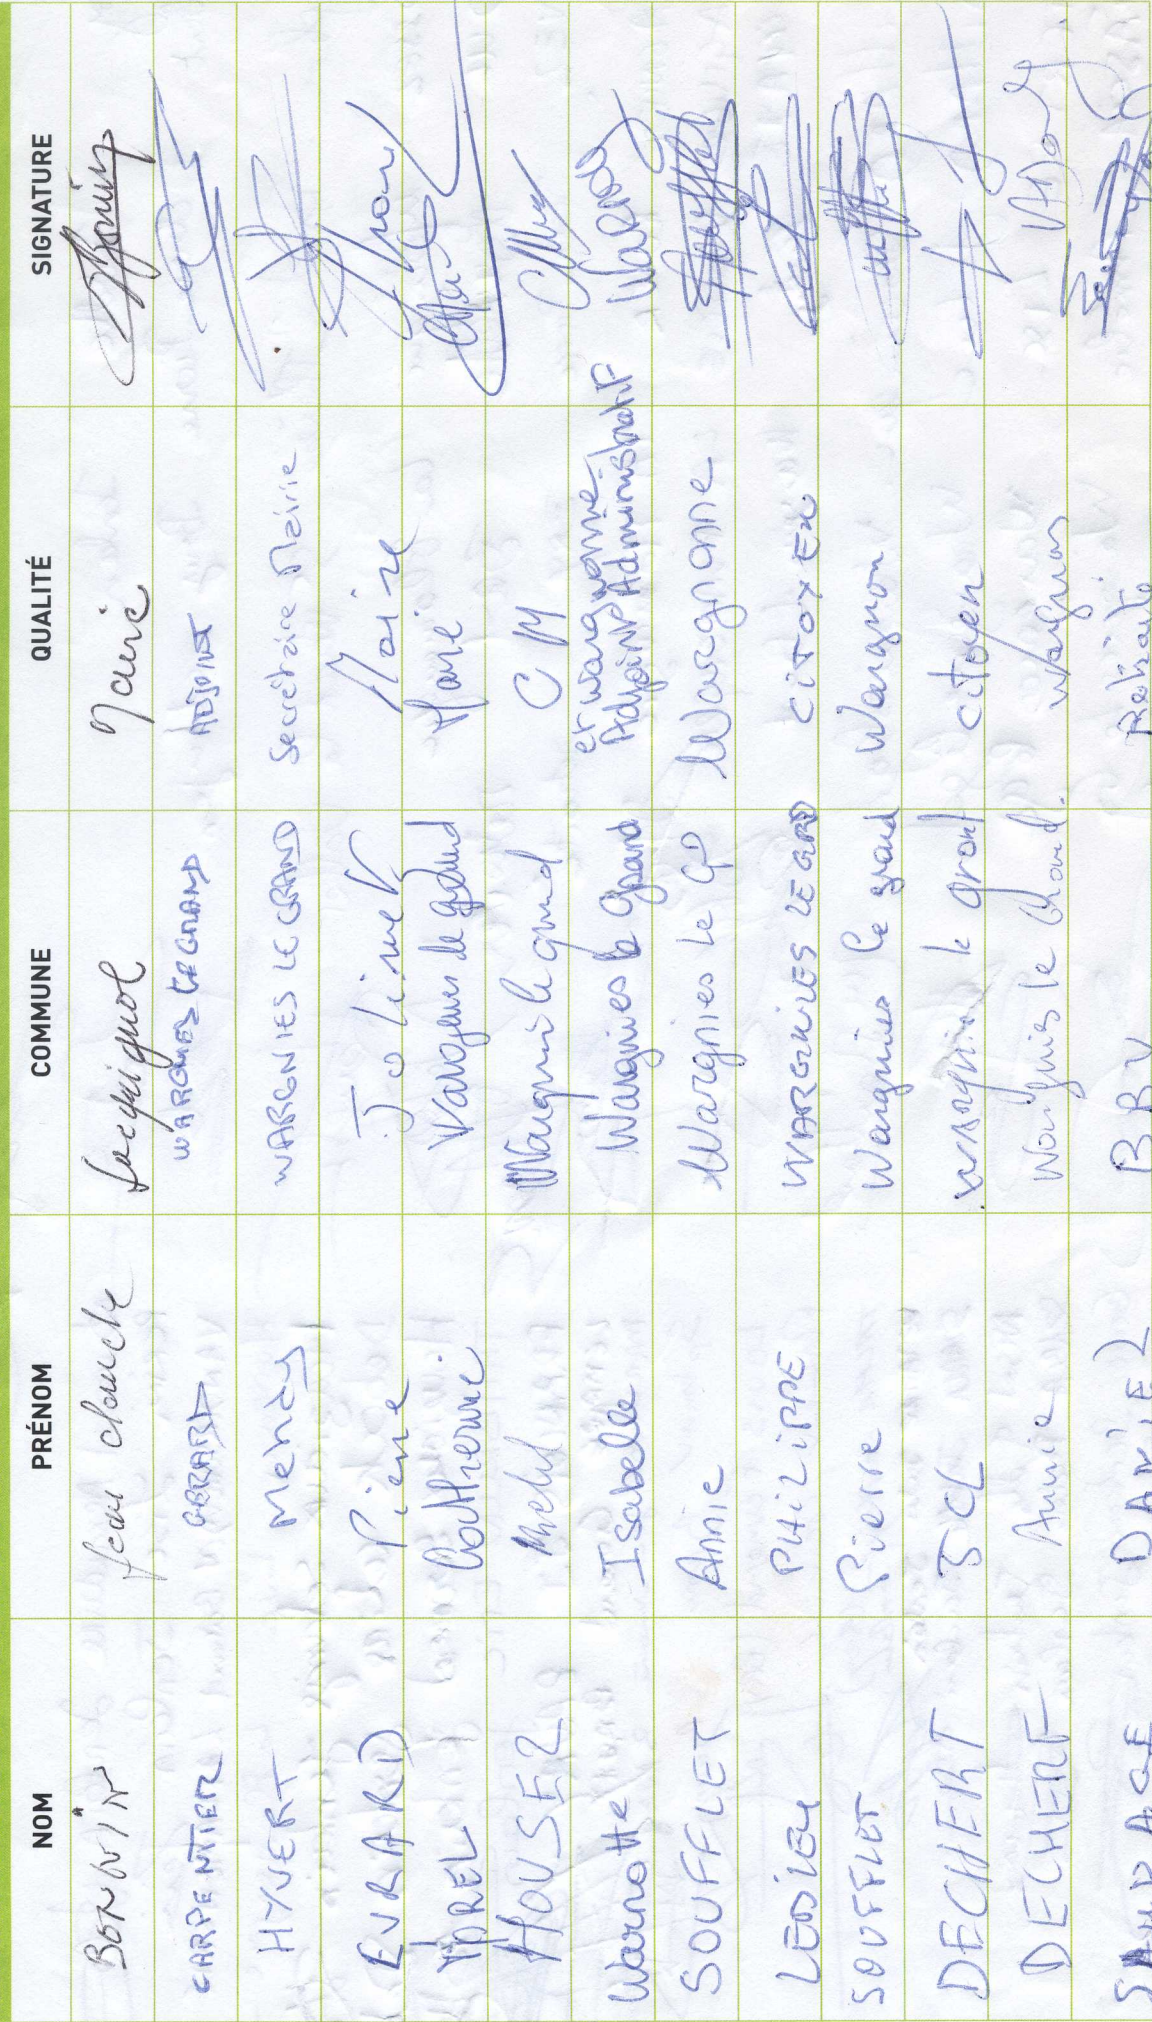 NOM PRÉNOM COMMUNE QUALITÉ SIGNATURE
BONVIN Jean claude Locquignol Maire
CARPENTIER GERARD WARGNIES LE GRAND ADJOINT
HYVERT Mendy WARGNIES LE GRAND Secrétaire Mairie
EVRARD Pierre Jolimetz Maire
Catherine Wargnies le grand
Michel Wargnies le grand CM
Warnotte Isabelle Wargnies le grand et wargnonne Adjoint Administratif
SOUFFLET Annie Wargnies le GD Wargnonne
LEDIEU PHILIPPE WARGNIES LE GRD CITOYEN
SOUFFLET Pierre Wargnies le grand Wargnon
DECHERT JCL Wargnies le grand citoyen
DECHERF Annie Wargnies le Grand. wargnon
DANIEL Retraité